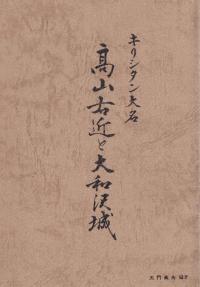 キリシタン大名
高山右近と大和沢城